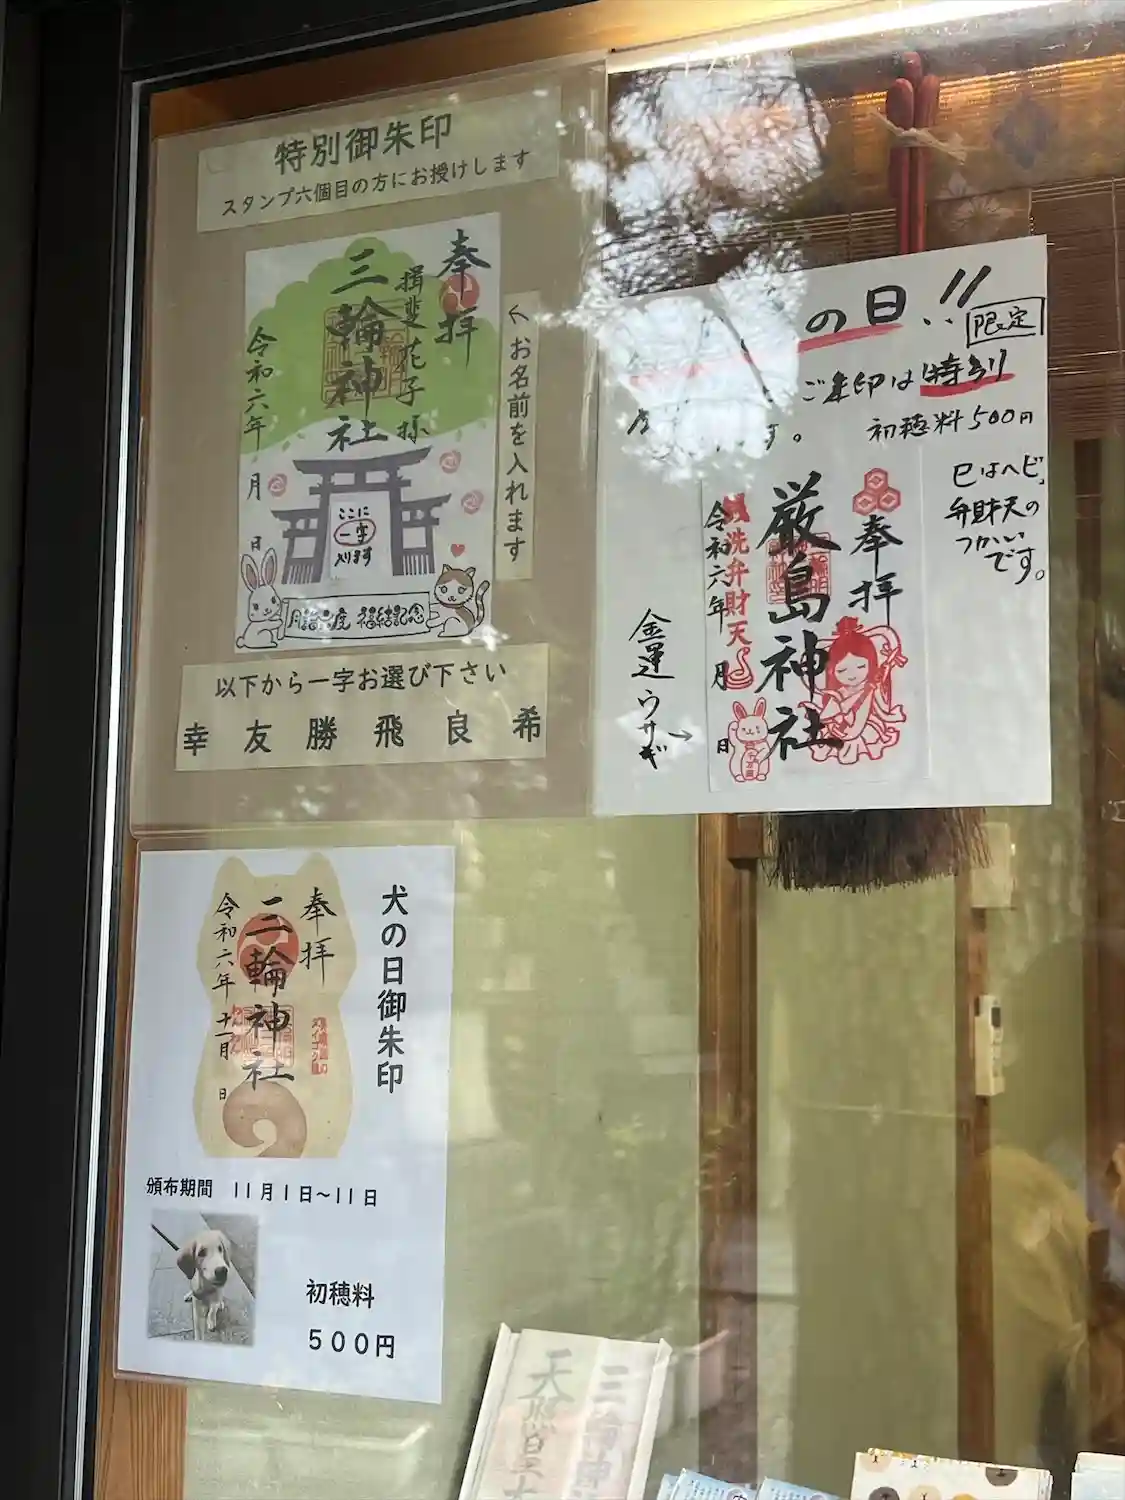 特別御朱印
スタンプ六個目の方にお授けします
奉拝
揖斐花子様
三輪神社
令和六年 月 日
ここに
一字
入ります
福結記念
←お名前を入れます
以下から一字お選び下さい
幸 友 勝 飛 良 希
の日!!
限定
ご朱印は特別
す。
初穂料500円
巳はヘビ、
弁財天の
つかい
です。
奉拝
厳島神社
銭洗弁財天
令和六年 月 日
金運ウサギ→
犬の日御朱印
奉拝
三輪神社
令和六年十一月 日
わんわん
頒布期間 11月1日~11日
初穂料
500円
三
天照皇大